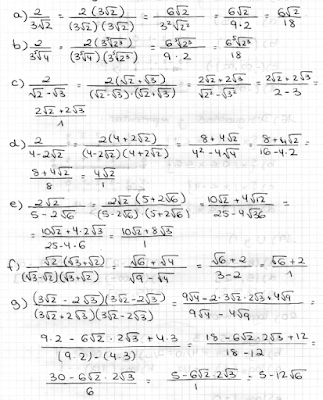 a) 2/3√2 = 2(3√2)/(3√2)(3√2) = 6√2/3²√2² = 6√2/9·2 = 6√2/18
b) 2/3⁵√4 = 2(3⁵√2³)/(3⁵√4)(3⁵√2³) = 6⁵√2³/9·2 = 6⁵√2³/18
c) 2/√2-√3 = 2(√2+√3)/(√2-√3)·(√2+√3) = 2√2+2√3/√2²-√3² = 2√2+2√3/2-3 =
2√2+2√3/1
d) 2/4-2√2 = 2(4+2√2)/(4-2√2)(4+2√2) = 8+4√2/4²-4√4 = 8+4√2/16-4·2 =
8+4√2/8 = 4√2/1
e) 2√2/5-2√6 = 2√2(5+2√6)/(5-2√6)(5+2√6) = 10√2+4√12/25-4√36 =
= 10√2+4·2√3/25-4·6 = 10√2+8√3/1
f) √2(√3+√2)/(√3-√2)(√3+√2) = √6+√4/√9-√4 = √6+2/3-2 = √6+2/1
g) (3√2-2√3)(3√2-2√3)/(3√2+2√3)(3√2-2√3) = 9√4-2·3√2·2√3+4√9/9√4-4√9 =
9·2-6√2·2√3+4·3/(9·2)-(4·3) = 18-6√2·2√3+12/18-12 =
30-6√2·2√3/6 = 5-6√2·2√3/1 = 5-12√6